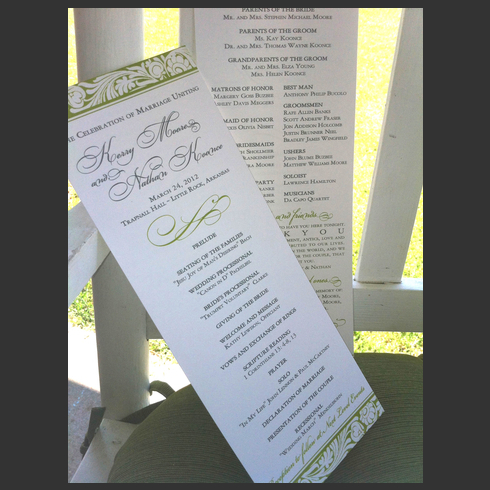 The Celebration of Marriage Uniting
Korry Moore
and Nathan Koonce
March 24, 2012
Trapnall Hall - Little Rock, Arkansas
Prelude
Seating of the Families
"Jesu Joy of Man's Desiring" Bach
Wedding Processional
"Canon in D" Pachelbel
Bride's Processional
"Trumpet Voluntary" Clarke
Giving of the Bride
Welcome and Message
Kathy Lawson, Officiant
Vows and Exchange of Rings
Scripture Reading
I Corinthians 13: 4-8, 13
Prayer
Solo
"In My Life" John Lennon & Paul McCartney
Declaration of Marriage
Presentation of the Couple
Recessional
"Wedding March" Mendelssohn
Reception to follow at Next Level Events
Parents of the Bride
Mr. and Mrs. Stephen Michael Moore
Parents of the Groom
Ms. Kay Koonce
Dr. and Mrs. Thomas Wayne Koonce
Grandparents of the Groom
Mr. and Mrs. Elza Young
Mrs. Helen Koonce
Matrons of Honor
Margery Goss Buzbee
Ashley Davis Meggers
Maid of Honor
Olivia Nisbet
Bridesmaids
Shollmier
Party
Best Man
Anthony Philip Bucolo
Groomsmen
Rhys Allen Banks
Scott Andrew Fraser
Jon Addison Holcomb
Justin Brummer Neel
Bradley James Wingfield
Ushers
John Blume Buzbee
Matthew William Moore
Soloist
Lawrence Hamilton
Musicians
Da Capo Quartet
and friends
have you here tonight
K Y O U
love and
to our lives.
world, and
& Nathan
in memory of
Moore,